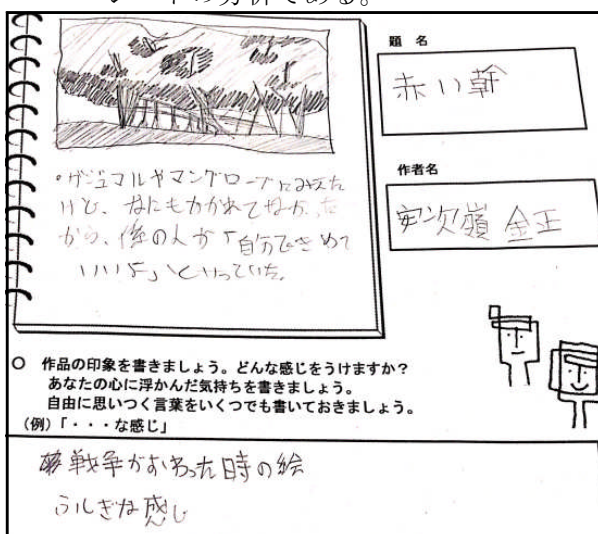 シートの分析である。
題 名
赤い幹
作者名
安次嶺 金正
・ガジュマルやマングローブにみえた
けど、なにもかかれてなかった
から、係の人が「自分できめて
いいよ」といっていた。
○ 作品の印象を書きましょう。どんな感じをうけますか？
あなたの心に浮かんだ気持ちを書きましょう。
自由に思いつく言葉をいくつでも書いておきましょう。
（例）「・・・な感じ」
戦争がおわった時の絵
ふしぎな感じ